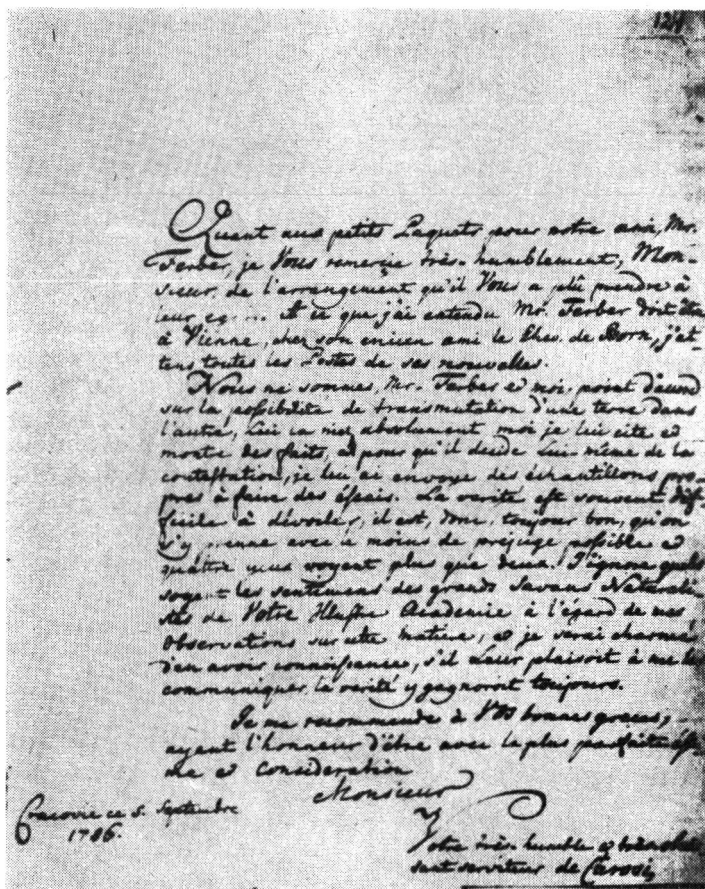 124
Quant aux petits Paquets pour notre ami, Mr.
Ferber, je Vous remercie très-humblement, Mon-
sieur de l'arrangement qu'il Vous a plû prendre à
leur eg.... A ce que j'ai entendu Mr. Ferber doit être
à Vienne, chez son encien ami le Chev. de Born, j'at
tens toutes les Postes de ses nouvelles.
Nous ne sommes, Mr. Ferber et moi, point d'accord
sur la possibilité de transmutation d'une terre dans
l'autre, Lui la nie absolument, moi je lui cite et
montre des faits, et pour qu'il decide Lui-même de la
contestation, je lui ai envoyé des échantillons pro-
pres à faire des éssais. La verité est souvent dif-
ficile à dévoiler, il est, donc, toujour bon, qu'on
s'y prenne avec le moins de prejugé possible et
quatre yeux voyent plus que deux. J'ignore quels
soyent les sentimens des grands Savans Naturali-
stes de Votre Illustre Academie à l'égard de mes
Observations sur cette matiere, et je serai charmé
d'en avoir connoissance, s'il Leur plaisoit à me les
communiquer, la verité y gagneroit toujours.
Je me recommende à Vos bonnes graces,
ayant l'honneur d'être avec la plus parfaite esti
me et consideration
Monsieur
Cracovie ce 5. Septembre
1786.
Votre très-humble et très obeis
sant serviteur de Carosi